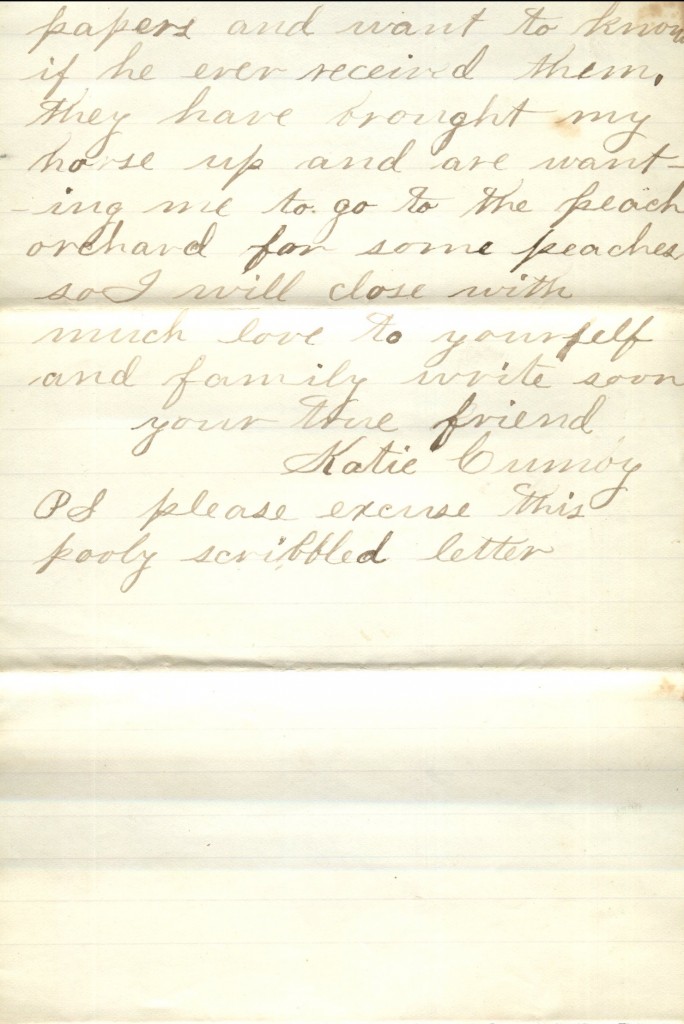 papers and want to know
if he ever received them,
they have brought my
horse up and are want-
-ing me to go to the peach
orchard for some peaches
so I will close with
much love to yourself
and family write soon
your true friend
Katie Cumoy
PS please excuse this
pooly scribbled letter